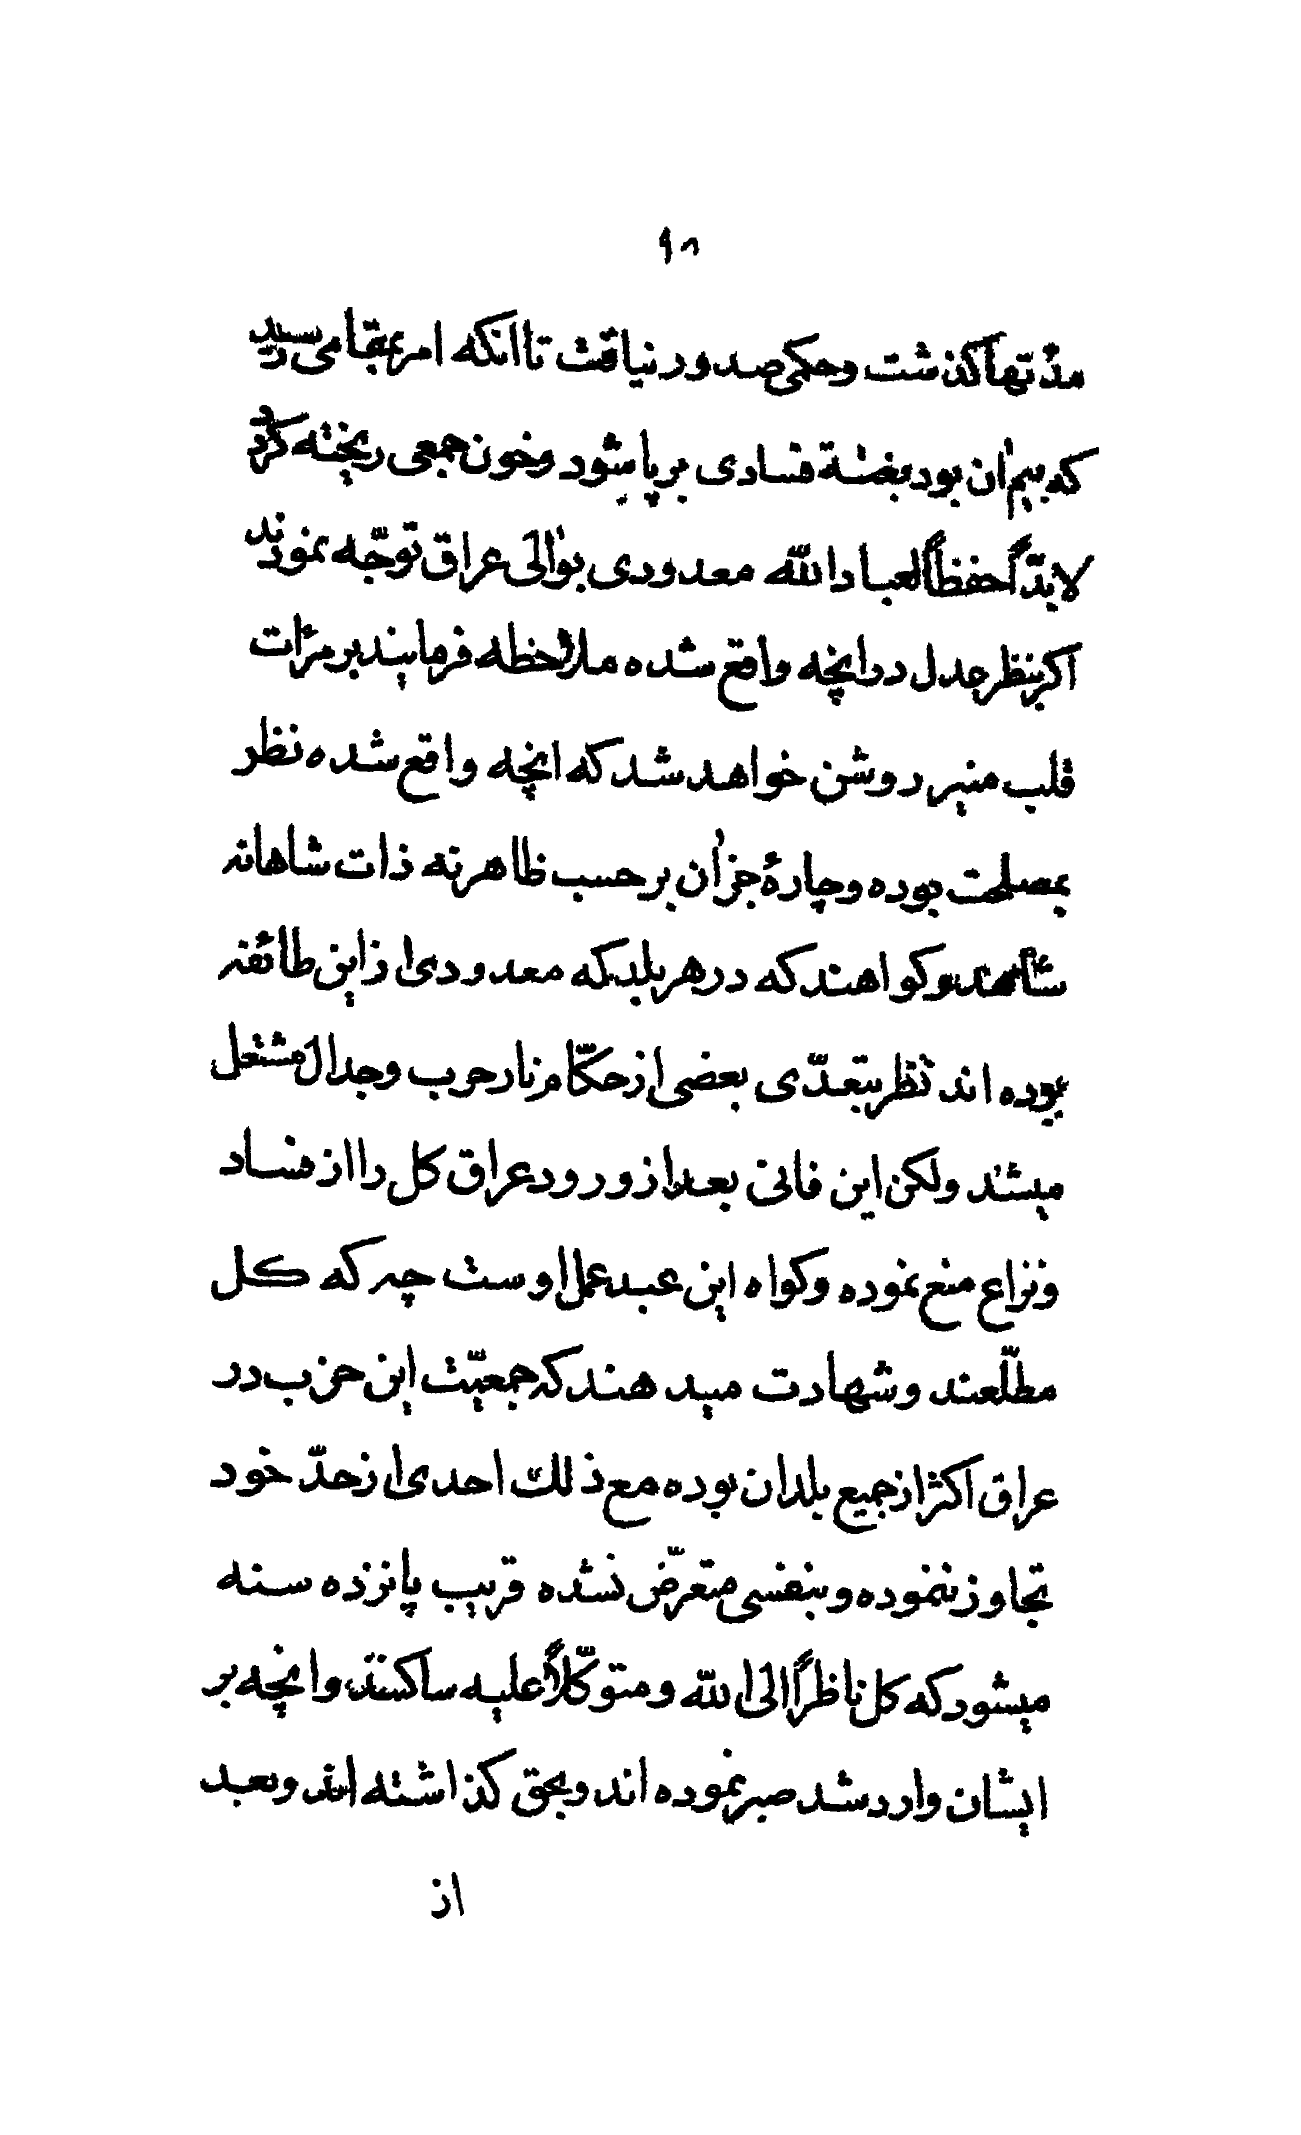 ٩٨
مدّتها کذشت و حکمی صدور نیافت تا انکه امر بمقامی رسید
که بیم ان بود بغتة فسادی برپا شود و خون جمعی ریخته کردد
لابدّاً حفظاً لعباد الله معدودی بوالی عراق توجّه نمودند
اکر بنظر عدل در انچه واقع شده ملاحظه فرمایند بر مرٰات
قلب منیر روشن خواهد شد که انچه واقع شده نظر
بمصلحت بوده و چارهٔ جز ان بر حسب ظاهر نه ذات شاهانه
شاهد و کواهند که در هر بلد که معدودی از این طائفه
بوده اند نظر بتعدّی بعضی از حکّام نار حرب و جدال مشتعل
میشد ولکن این فانی بعد از ورود عراق کل را از فساد
و نزاع منع نموده و کواه این عبد عمل اوست چه که کل
مطلّعند و شهادت میدهند که جمعیّت این حزب در
عراق اکثر از جمیع بلدان بوده مع ذلک احدی از حدّ خود
تجاوز ننموده و بنفسی متعرّض نشده قریب پانزده سنه
میشود که کل ناظراً الی الله و متوکّلاً علیه ساکنند و انچه بر
ایشان وارد شد صبر نموده اند و بحق کذاشته اند و بعد
از